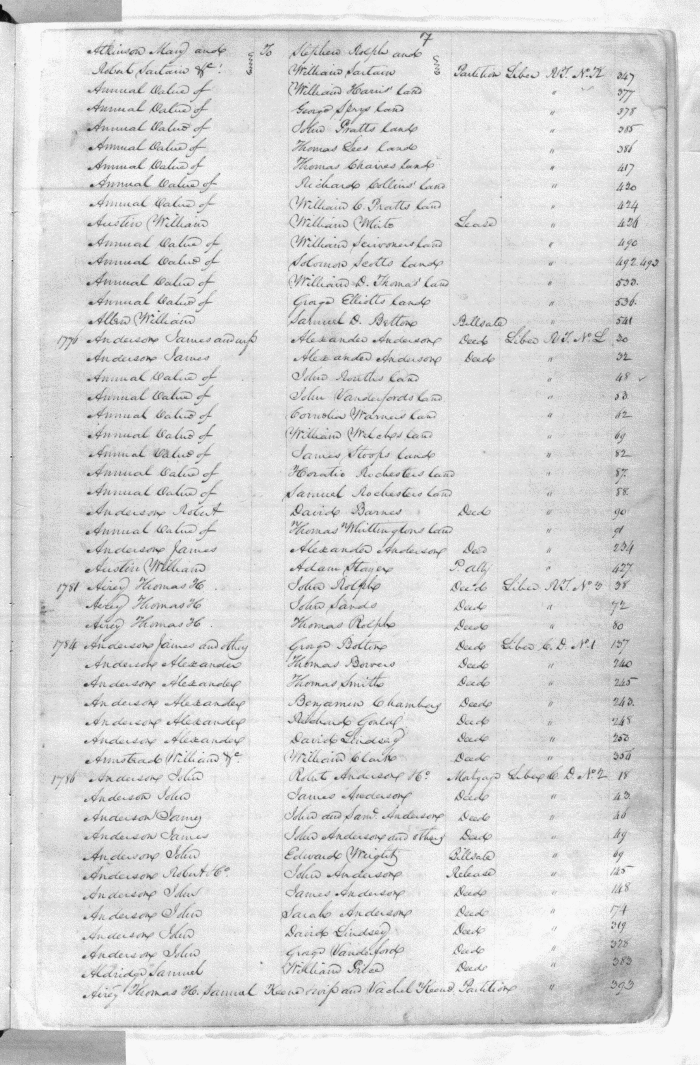 7
Atkinson Mary and To Stephen Rolph and
Robert Sartain &c. William Sartain Partition Liber R.T. No. K 347
Annual Value of William Harris' land " 377
Annual Value of George Sprys land " 378
Annual Value of John Pratts land " 385
Annual Value of Thomas Lees land " 386
Annual Value of Thomas Chaires land " 417
Annual Value of Richard Collins' land " 420
Annual Value of William C. Pratts land " 424
Austin William William White Lease " 426
Annual Value of William Scrivoners land " 490
Annual Value of Solomon Scotts land " 492.493
Annual Value of William D. Thomas' land " 533.
Annual Value of George Elliotts land " 536.
Allen William Samuel D. Bolton Billsale " 541
1776 Anderson James and wife Alexander Anderson Deed Liber R.T. No. L 30
Anderson James Alexander Anderson Deed " 32
Annual Value of John Rouths land " 48
Annual Value of John Vanderfords land " 53
Annual Value of Cornelia Warners land " 62
Annual Value of William Wilcocks land " 69
Annual Value of James Stoops land " 82
Annual Value of Horatio Rochesters land " 87.
Annual Value of Samuel Rochesters land " 88
Anderson Robert David Barnes Deed " 90
Annual Value of Thomas Whittingtons land " 91
Anderson James Alexander Anderson Deed " 234
Austin William Adam P. Atty " 427
1781 Airey Thomas H. John Rolph Deed Liber R.T. No. 3 38
Airey Thomas H. John Sands Deed " 72
Airey Thomas H. Thomas Rolph Deed " 80
1784 Anderson James and others George Bolton Deed Liber C.D. No. 1 137
Anderson Alexander Thomas Bowers Deed " 240
Anderson Alexander Thomas Smith Deed " 245
Anderson Alexander Benjamin Chambers Deed " 243.
Anderson Alexander Richard Gould Deed " 248
Anderson Alexander David Lindsey Deed " 253
Armstrad William &c. William Clark Deed " 356
1786 Anderson John Robert Anderson &c. Mortgage Liber C.D. No. 2 18
Anderson John James Anderson Deed " 43
Anderson James John and Saml. Anderson Deed " 46
Anderson James John Anderson and others Deed " 49
Anderson John Edward Wright Billsale " 69
Anderson Robert &c. John Anderson Release " 145
Anderson John James Anderson Deed " 148
Anderson John Sarah Anderson Deed " 174
Anderson John David Lindsey Deed " 319
Anderson John George Vanderford Deed " 378
Aldridge Samuel William Price Deed " 383
Airey Thomas H. Samuel Keene & wife and Vachel Keene Partition " 393